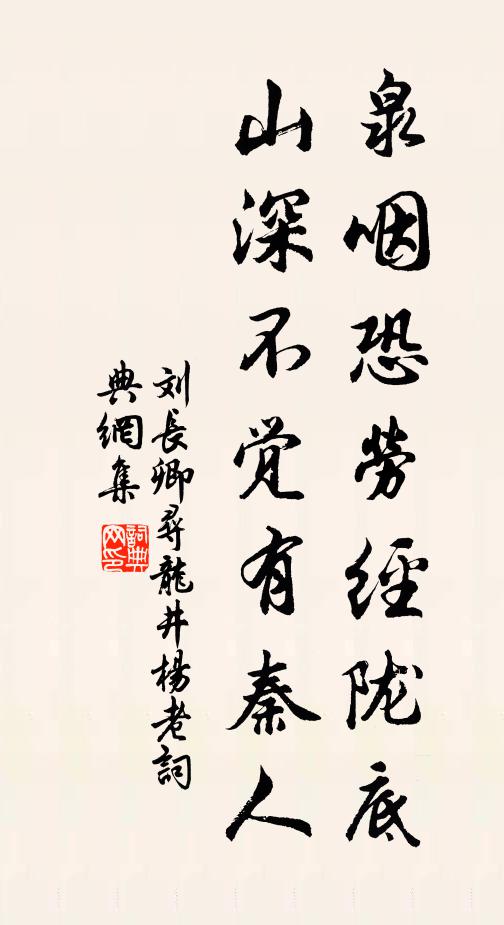 泉咽恐劳經陇底
山深不觉有秦人
刘長卿尋龍井楊老詞
典網集
詞典
网印